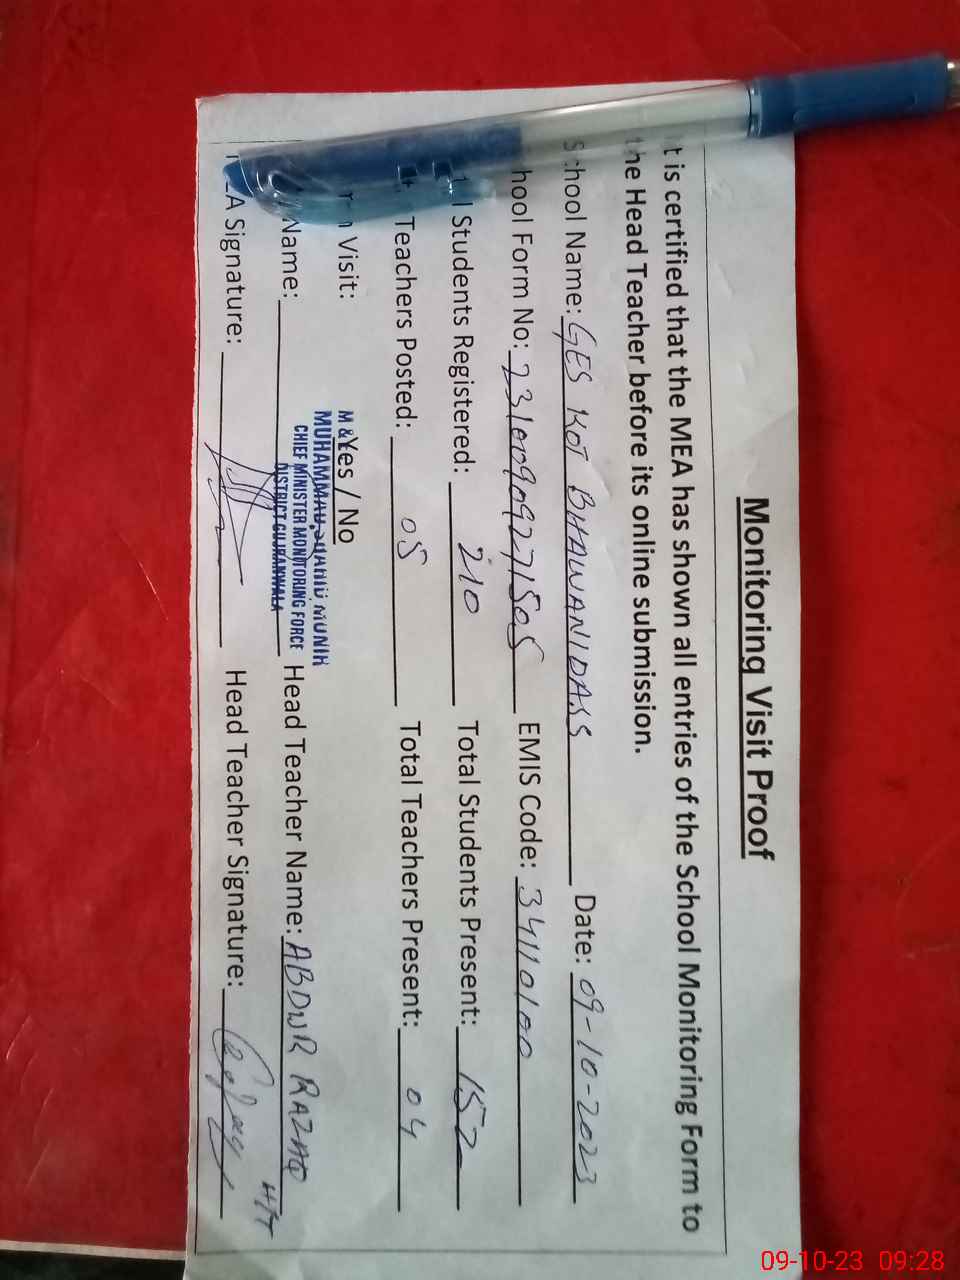 Monitoring Visit Proof
It is certified that the MEA has shown all entries of the School Monitoring Form to
the Head Teacher before its online submission.
School Name: GES KOT BHAWANIDASS Date: 09-10-2023
hool Form No: 23100909271505 EMIS Code: 34110100
l Students Registered: 210 Total Students Present: 152
Teachers Posted: 05 Total Teachers Present: 04
Visit: Yes / No
M &
MUHAMMAD MUNIR
CHIEF MINISTER MONITORING FORCE
DISTRICT GUJRANWALA
Name: Head Teacher Name: ABDUR RAZAQ
H/T
A Signature: Head Teacher Signature:
09-10-23 09:28